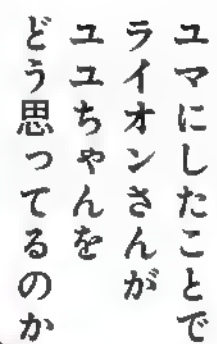 ユマにしたことで
ライオンさんが
ユユちゃんを
どう思ってるのか